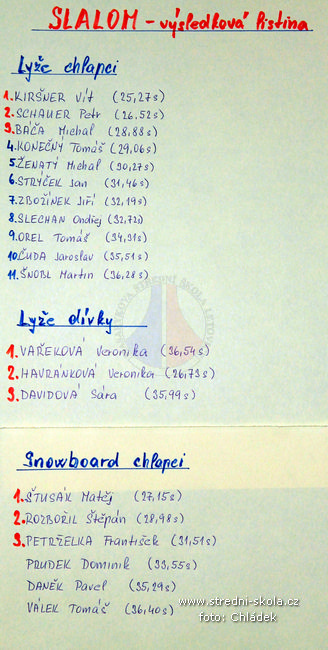 SLALOM - výsledková listina
Lyže chlapci
1. KIRŠNER Vít (25,27s)
2. SCHAUER Petr (26,52s)
3. BÁČA Michal (28,88s)
4. KONEČNÝ Tomáš (29,06s)
5. ŽENATÝ Michal (30,27s)
6. STRÝČEK Jan (31,46s)
7. ZBOŽÍNEK Jiří (32,19s)
8. SLECHAN Ondřej (32,72s)
9. OREL Tomáš (34,31s)
10. ČUDA Jaroslav (35,51s)
11. ŠNOBL Martin (36,28s)
Lyže dívky
1. VAŘEKOVÁ Veronika (36,54s)
2. HAVRÁNKOVÁ Veronika (26,73s)
3. DAVIDOVÁ Sára (35,99s)
Snowboard chlapci
1. ŠTUSÁK Matěj (27,15s)
2. ROZBOŘIL Štěpán (28,98s)
3. PETRŽELKA František (31,51s)
PRUDEK Dominik (33,55s)
DANĚK Pavel (35,29s)
VÁLEK Tomáš (36,40s)
www.stredni-skola.cz
foto: Chládek